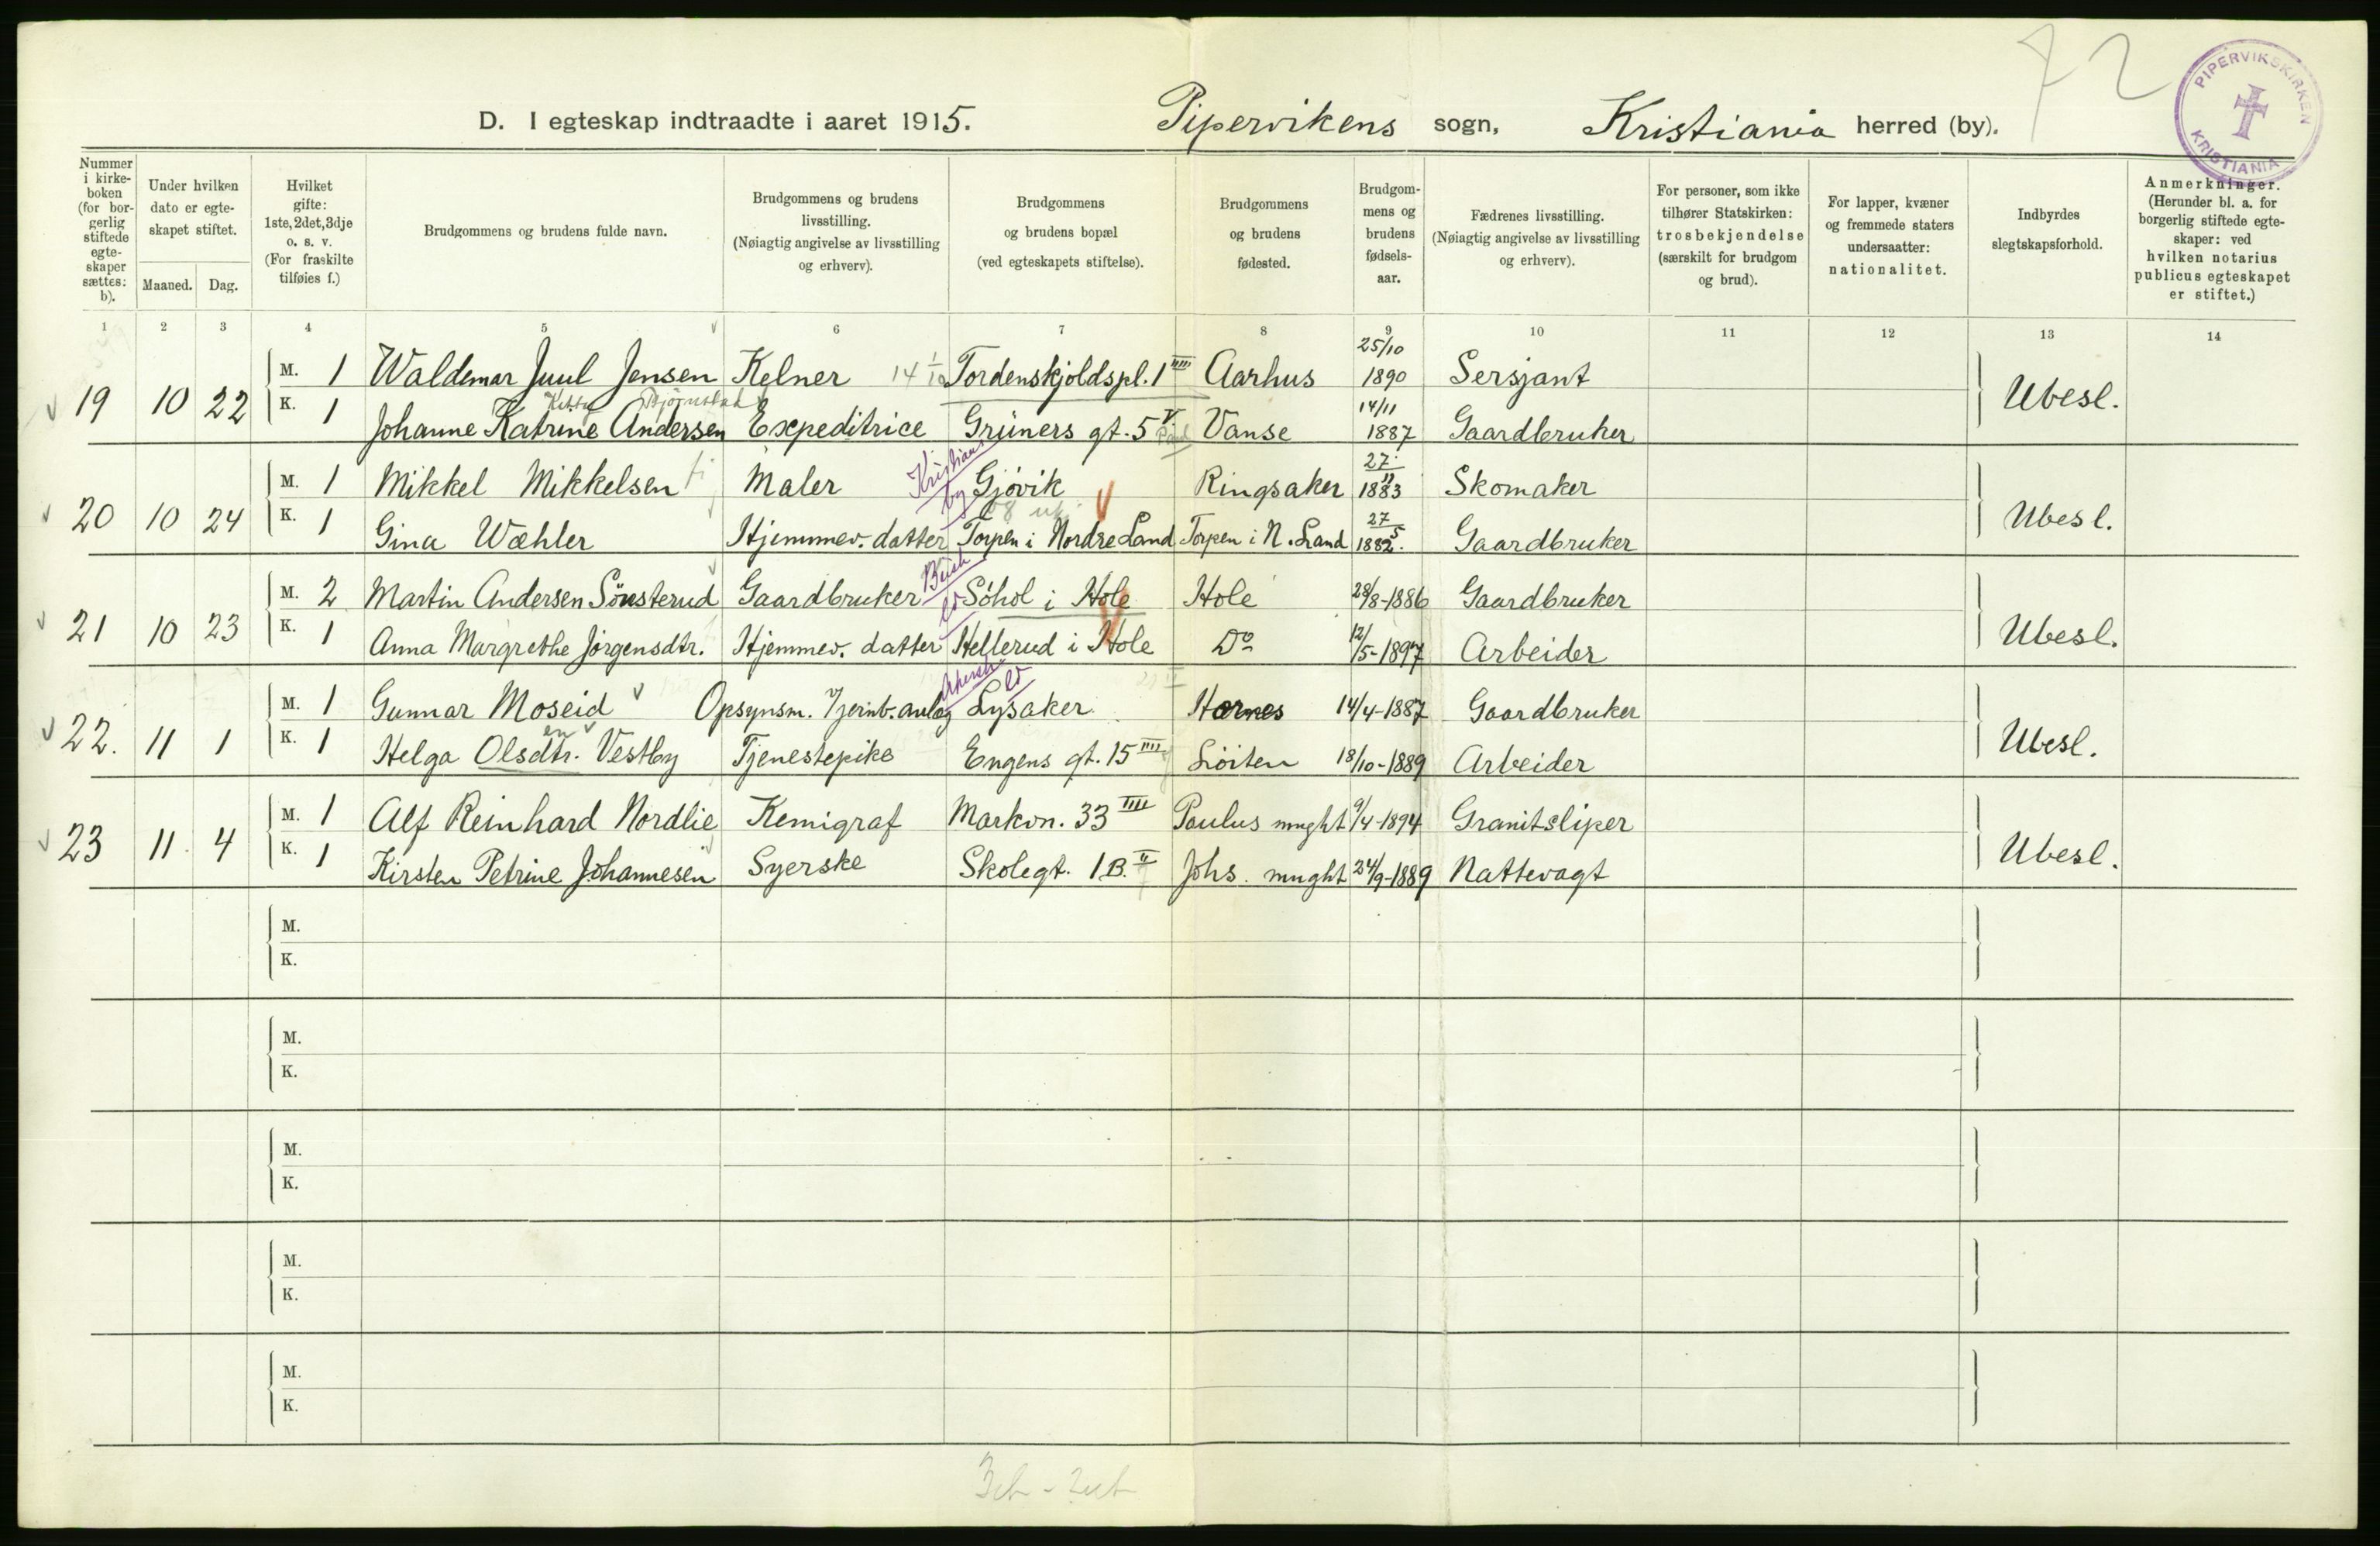 72
PIPERVIKSKIRKEN KRISTIANIA
D. I egteskap indtraadte i aaret 1915. Pipervikens sogn, Kristiania herred (by).
Nummer i kirke-boken (for bor-gerlig stiftede egte-skaper sættes: b).
Under hvilken dato er egte-skapet stiftet.
Maaned. Dag.
Hvilket gifte: 1ste, 2det, 3dje o. s. v. (For fraskilte tilføies f.)
Brudgommens og brudens fulde navn.
Brudgommens og brudens livsstilling. (Nøiagtig angivelse av livsstilling og erhverv).
Brudgommens og brudens bopæl (ved egteskapets stiftelse).
Brudgommens og brudens fødested.
Brudgom-mens og brudens fødsels-aar.
Fædrenes livsstilling. (Nøiagtig angivelse av livsstilling og erhverv).
For personer, som ikke tilhører Statskirken: trosbekjendelse (særskilt for brudgom og brud).
For lapper, kvæner og fremmede staters undersaatter: nationalitet.
Indbyrdes slegtskapsforhold.
Anmerkninger. (Herunder bl. a. for borgerlig stiftede egte-skaper: ved hvilken notarius publicus egteskapet er stiftet.)
1 2 3 4 5 6 7 8 9 10 11 12 13 14
19 10 22 M. 1 Waldemar Juul Jensen Kelner 14 Tordenskjoldspl. 1 IIII Aarhus 25/10 1890 Sersjant Ubesl.
K. 1 Johanne Katrine Andersen Expeditrice Grüners gt. 5 V Vanse 14/11 1887 Gaardbruker
20 10 24 M. 1 Mikkel Mikkelsen Maler Kristians by Gjøvik Ringsaker 27/11 1883 Skomaker Ubesl.
K. 1 Gina Wæhler Hjemmev. datter Torpen i Nordre Land Torpen i N. Land 27/5 1882. Gaardbruker
21 10 23 M. 2 Martin Andersen Sönsterud Gaardbruker Busk ld Søhol i Hole Hole 28/8-1886 Gaardbruker Ubesl.
K. 1 Anna Margrethe Jørgensdtr. Hjemmev. datter Hellerud i Hole Do 12/5-1897 Arbeider
22. 11 1 M. 1 Gunnar Moseid Opsynsm. Jernb. anlæg Akersh ld Lysaker Hornes 14/4-1887 Gaardbruker Ubesl.
K. 1 Helga Olsdtr. en Vestby Tjenestepike Engens gt. 15 IIII Löiten 18/10-1889 Arbeider
23 11 4 M. 1 Alf Reinhard Nordlie Kemigraf Markvn. 33 IIII Paulus mnght 9/4-1894 Granitsliper Ubesl.
K. 1 Kirsten Petrine Johannesen Syerske Skolegt. 1 B. II Johs. mnght 24/9-1889 Nattevagt
M.
K.
M.
K.
M.
K.
M.
K.
M.
K.